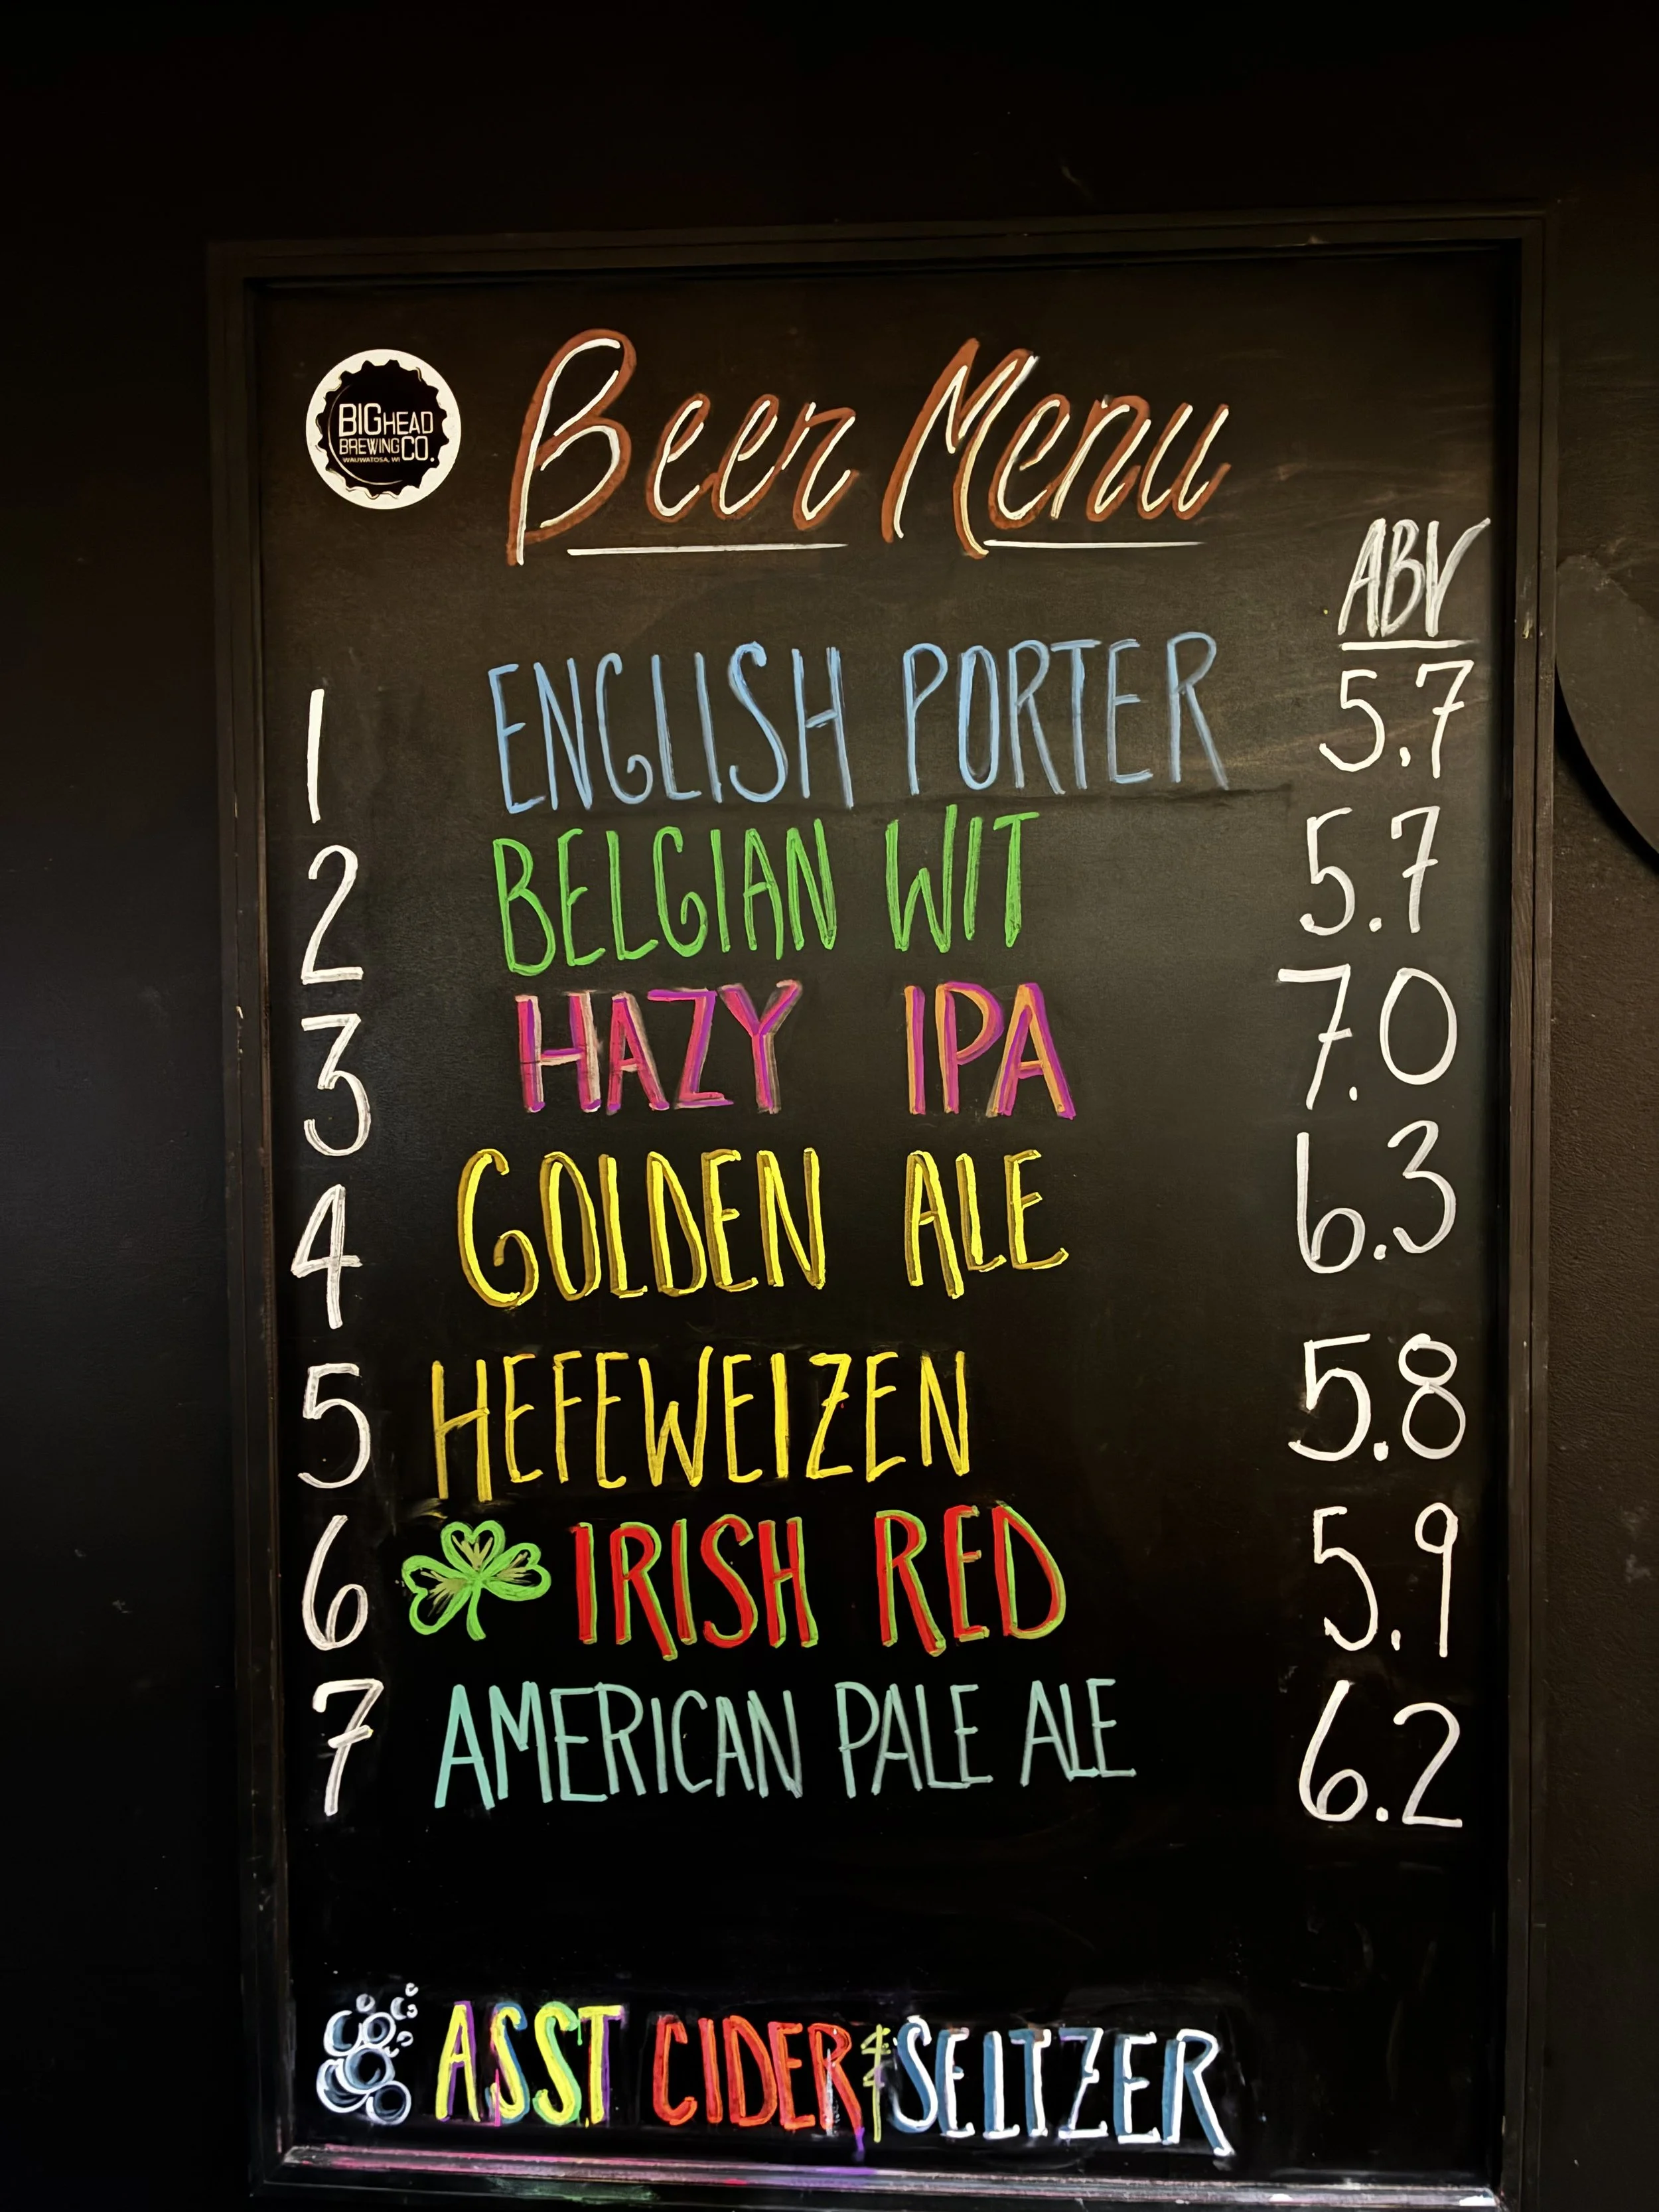 BIGHEAD
BREWING CO.
WAUWATOSA, WI
Beer Menu
ABV
1 ENGLISH PORTER 5.7
2 BELGIAN WIT 5.7
3 HAZY IPA 7.0
4 GOLDEN ALE 6.3
5 HEFEWEIZEN 5.8
6 IRISH RED 5.9
7 AMERICAN PALE ALE 6.2
ASST CIDER & SELTZER